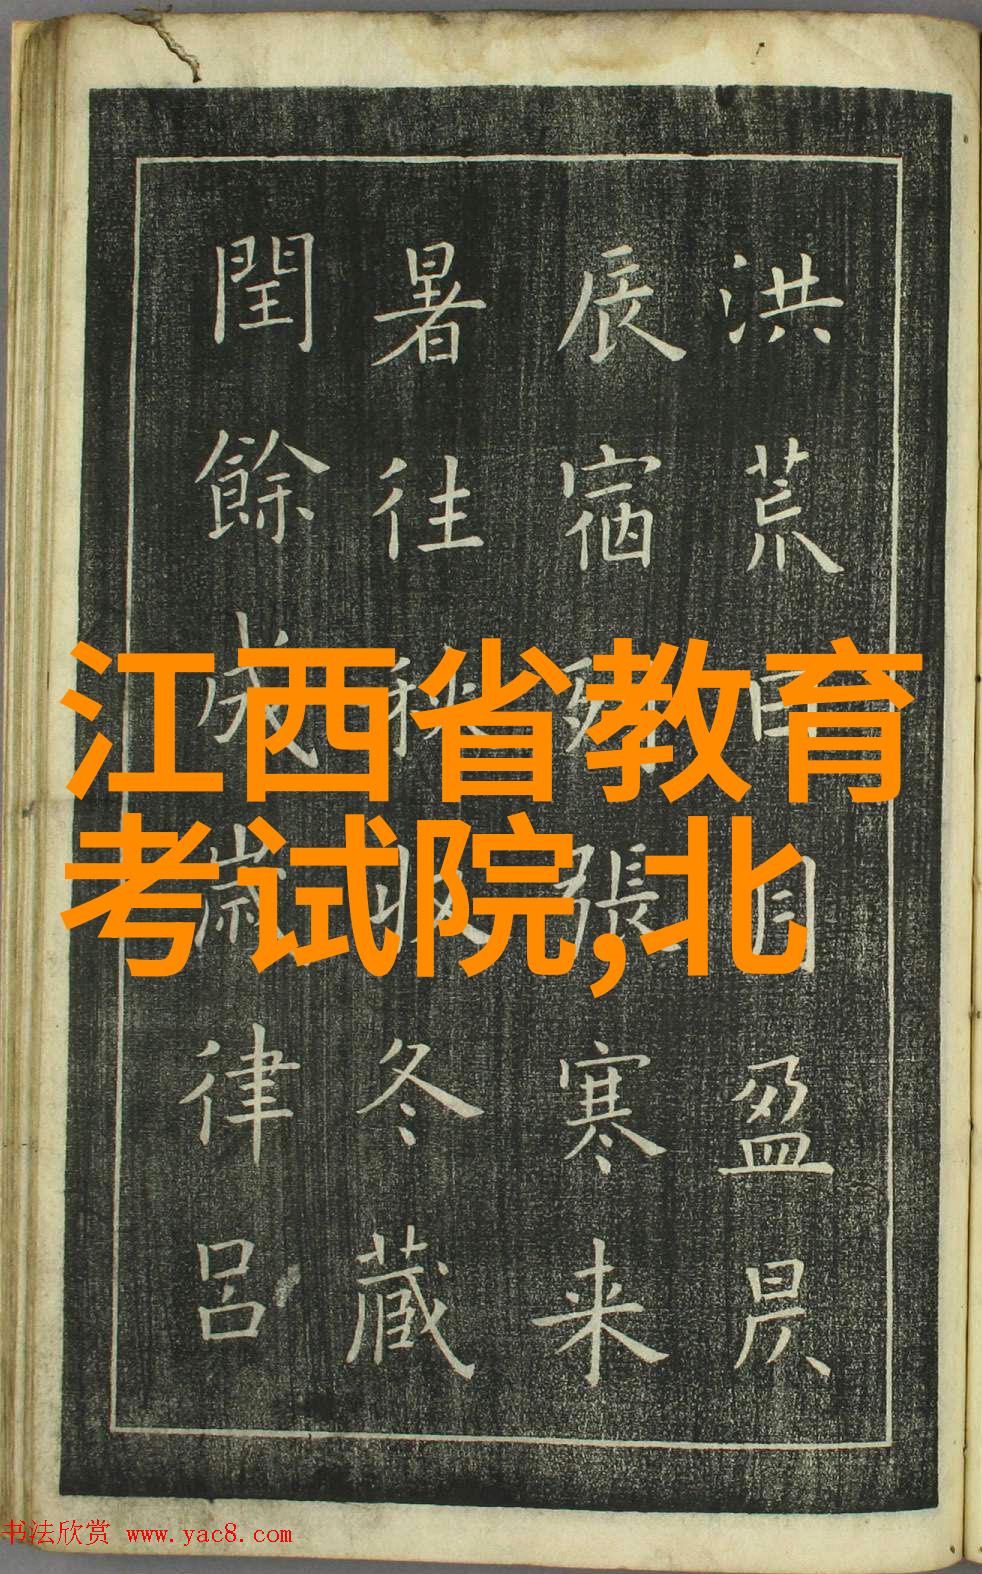 洪荒日月盈昃
辰宿列張寒来
暑往秋收冬藏
閏餘成歲律呂
江西省教育
考试院,北
书法欣赏 www.yac8.com